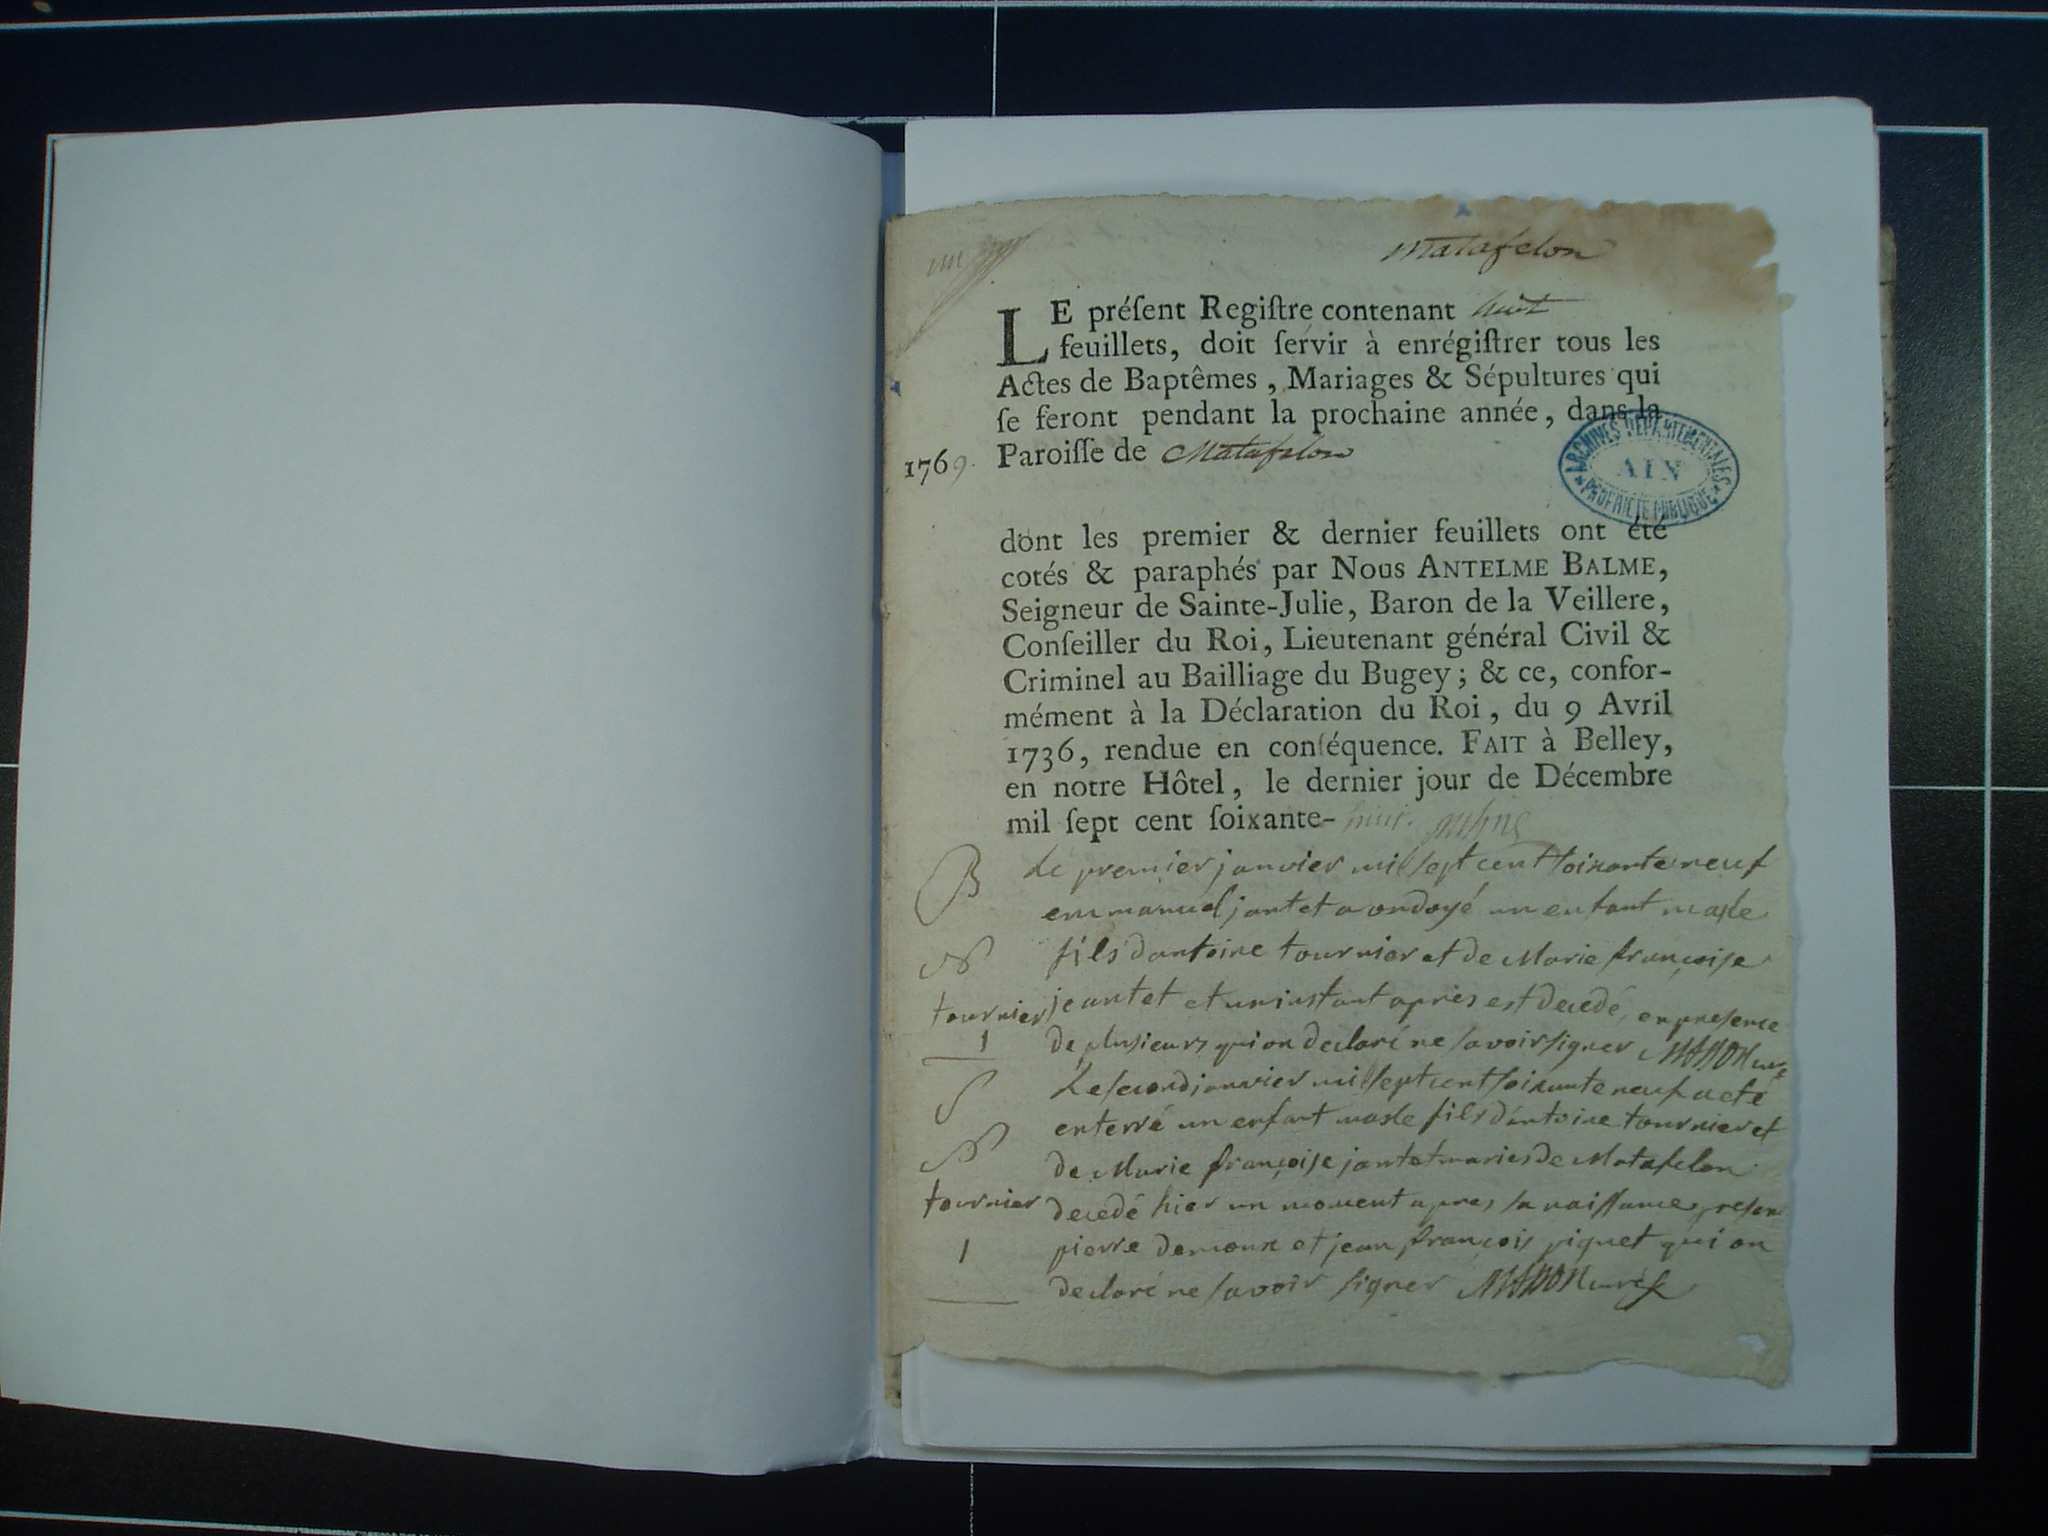 Matafelon
LE préſent Regiſtre contenant huit
feuillets, doit ſervir à enrégiſtrer tous les
Actes de Baptêmes, Mariages & Sépultures qui
ſe feront pendant la prochaine année, dans la
1769. Paroiſſe de Matafelon
ARCHIVES DÉPARTEMENTALES
AIN
PROPRIÉTÉ PUBLIQUE
dont les premier & dernier feuillets ont été
cotés & paraphés par Nous ANTELME BALME,
Seigneur de Sainte-Julie, Baron de la Veillere,
Conſeiller du Roi, Lieutenant général Civil &
Criminel au Bailliage du Bugey; & ce, confor-
mément à la Déclaration du Roi, du 9 Avril
1736, rendue en conſéquence. FAIT à Belley,
en notre Hôtel, le dernier jour de Décembre
mil ſept cent ſoixante-huit.
B Le premier janvier mil sept cent soixante neuf
emmanuel jantet a ondoyé un enfant masle
N fils dantoine tournier et de Marie françoise
tournier jeantet et un instant apries est decedé, en presence
1 de plusieurs qui on declaré ne savoir signer MANON curé
S Le second janvier mil sept cent soixante neuf a eté
enterré un enfant masle fils d'antoine tournier et
N de Marie françoise jantet maries de Matafelon
tournier decedé hier un moment apres sa naissance, presen
1 pierre demoux et jean françois piquet qui on
declaré ne savoir signer MANON curé